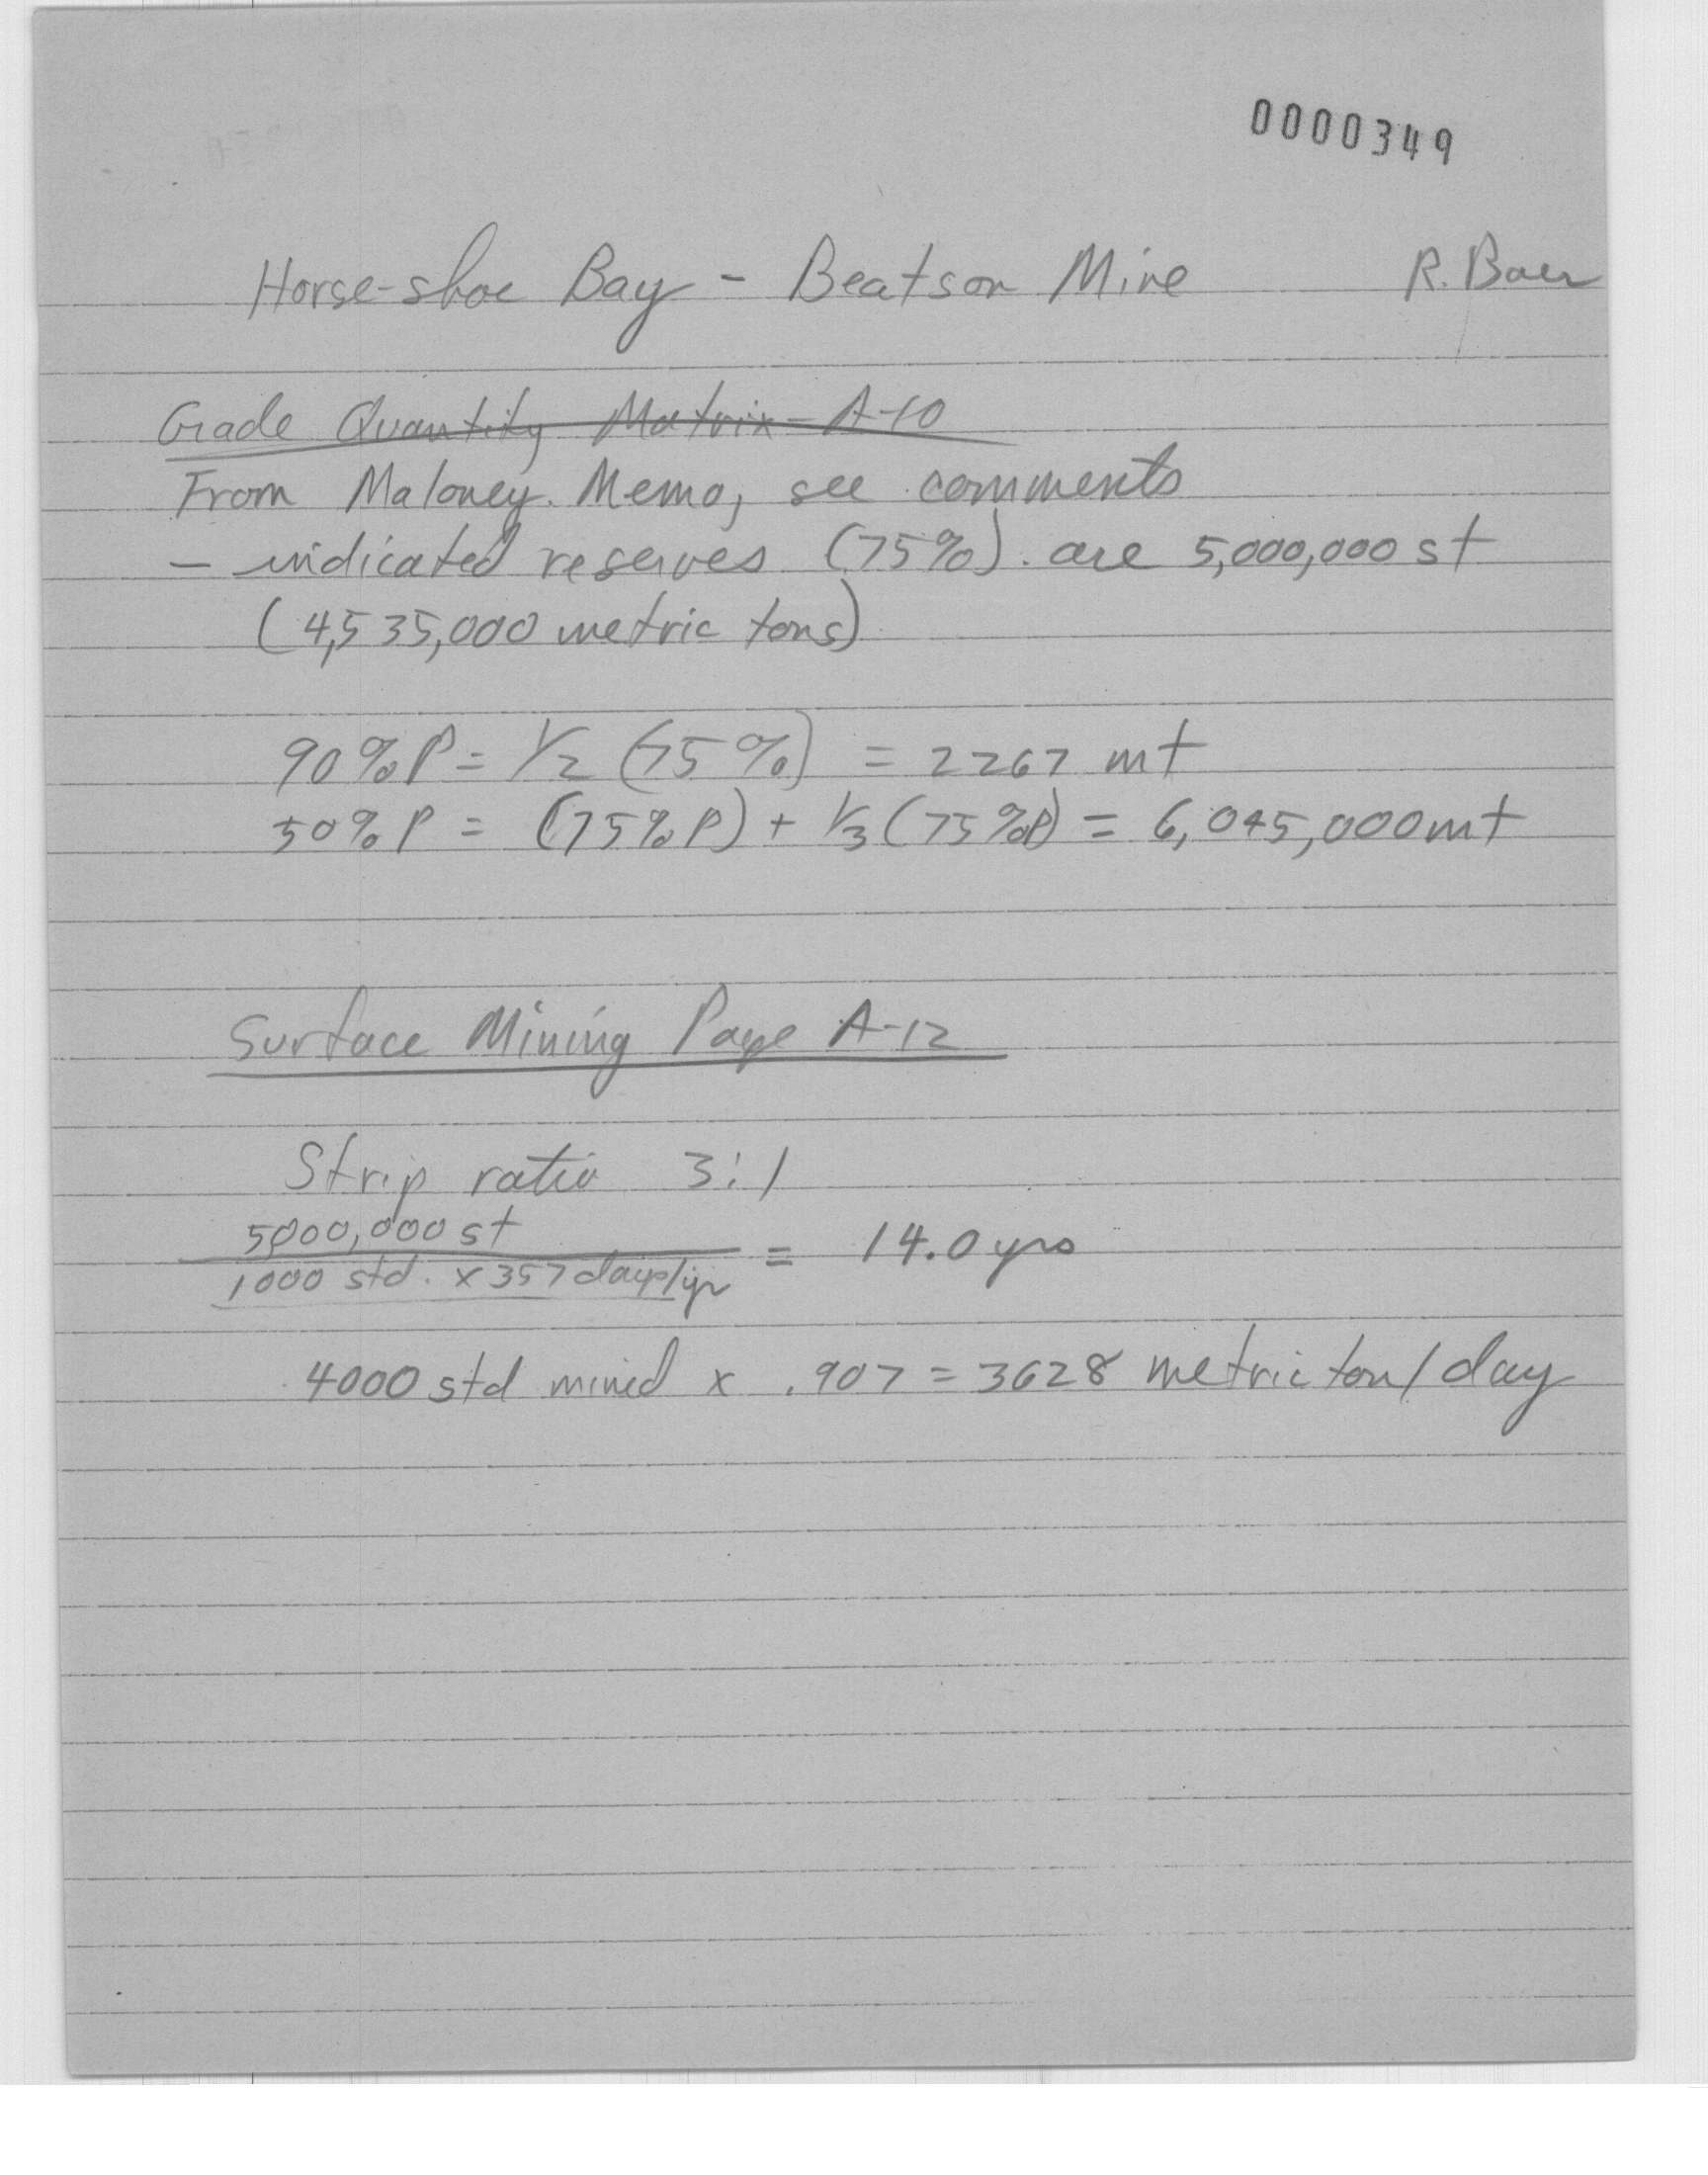 0000349
Horse-shoe Bay - Beatson Mine R. Baer
Grade Quantity Matrix - A-10
From Maloney Memo, see comments
- indicated reserves (75%) are 5,000,000 st
(4,535,000 metric tons)
90%P = 1/2 (75%) = 2267 mt
50%P = (75%P) + 1/3 (75%P) = 6,045,000 mt
Surface Mining Page A-12
Strip ratio 3:1
5000,000 st
1000 std. x 357 days/yr = 14.0 yrs
4000 std mined x .907 = 3628 metric ton/day